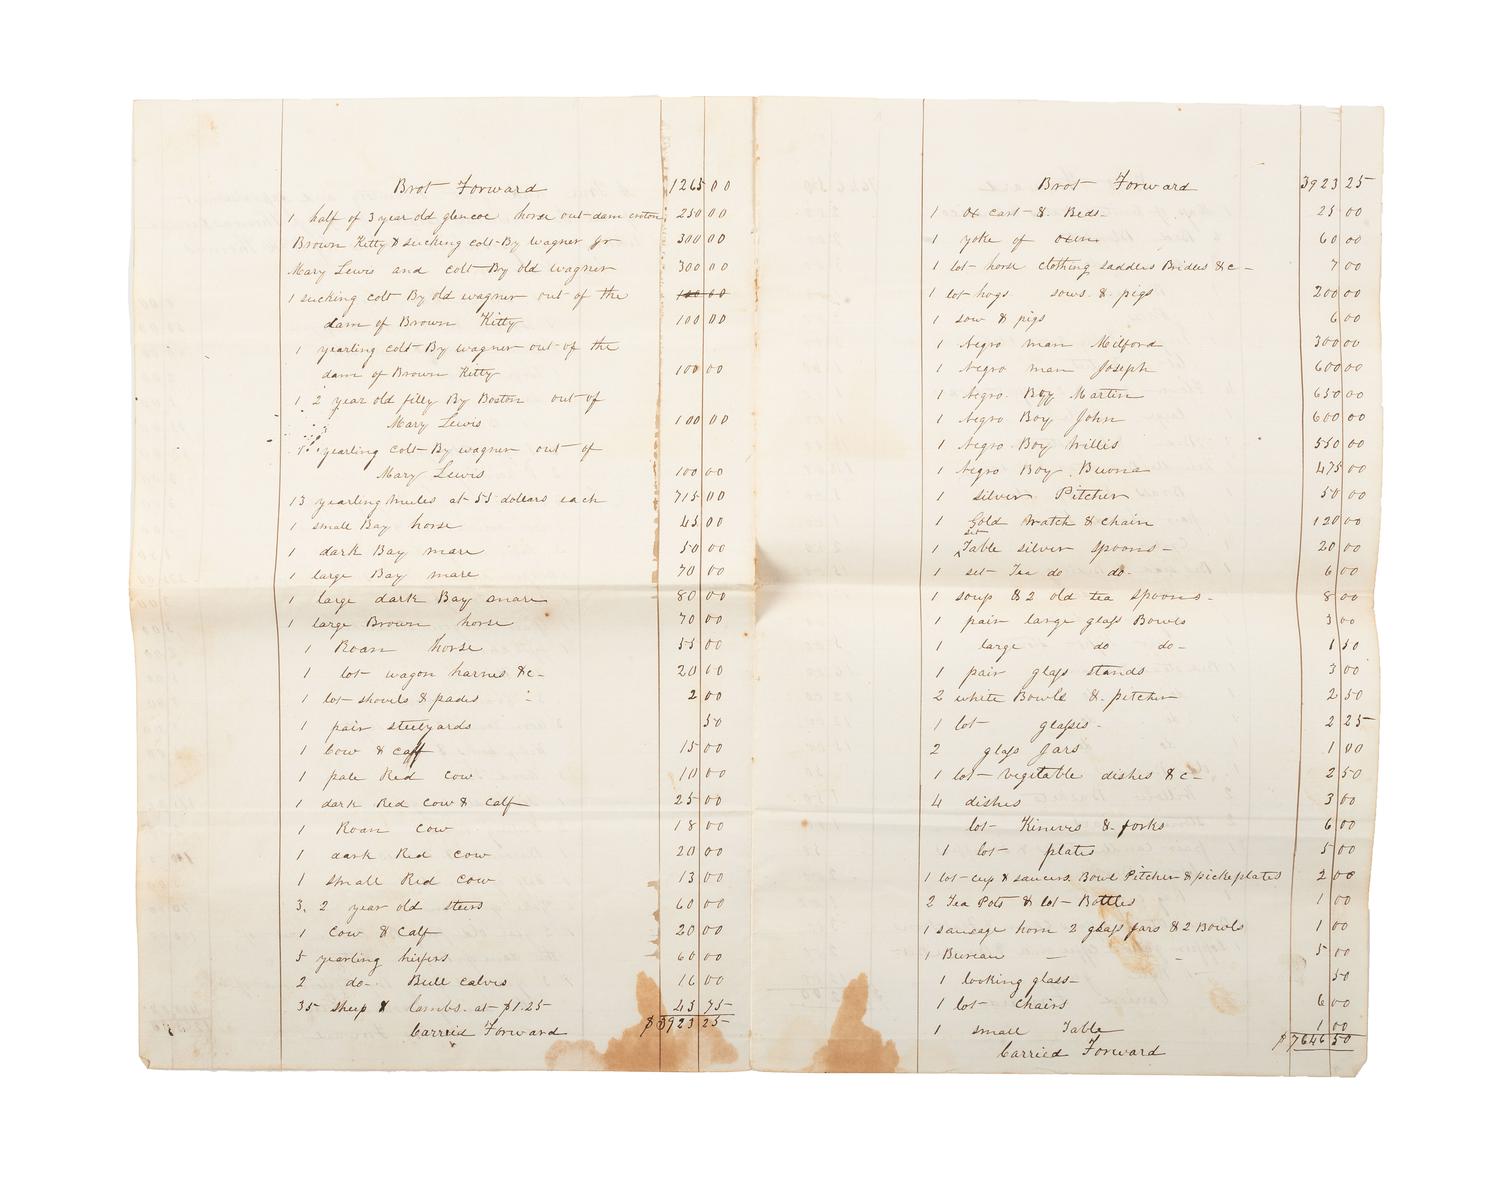 Brot Forward 1265 00
1 half of 3 year old glencoe horse out dam croton 250 00
Brown Kitty & sucking colt By wagner Jr 300 00
Mary Lewis and colt By old wagner 300 00
1 sucking colt By old wagner out of the 100 00
dam of Brown Kitty 100 00
1 yearling colt By wagner out of the
dam of Brown Kitty 100 00
1 2 year old filly By Boston out of
Mary Lewis 100 00
1 yearling colt By wagner out of
Mary Lewis 100 00
13 yearling mules at 55 dollars each 715 00
1 small Bay horse 45 00
1 dark Bay mare 50 00
1 large Bay mare 70 00
1 large dark Bay mare 80 00
1 large Brown horse 70 00
1 Roan horse 55 00
1 lot wagon harnes &c 20 00
1 lot shovels & spades 2 00
1 pair steelyards 50
1 Cow & calf 15 00
1 pale Red cow 10 00
1 dark Red cow & calf 25 00
1 Roan cow 18 00
1 dark Red cow 20 00
1 small Red cow 13 00
3, 2 year old steers 60 00
1 cow & calf 20 00
5 yearling heifers 60 00
2 do- Bull calves 16 00
35 sheep & lambs at $1.25 43 75
Carried Forward $3923 25
Brot Forward 3923 25
1 ox cart & Beds 25 00
1 yoke of oxen 60 00
1 lot horse clothing saddles Bridles &c 7 00
1 lot hogs sows & pigs 200 00
1 sow & pigs 6 00
1 Negro man Milford 300 00
1 Negro man Joseph 600 00
1 Negro Boy Martin 650 00
1 Negro Boy John 600 00
1 Negro Boy Willis 550 00
1 Negro Boy Buona 475 00
1 silver Pitcher 50 00
1 Gold Watch & chain 120 00
1 set Table silver spoons 20 00
1 set Tea do do- 6 00
1 soup & 2 old tea spoons 8 00
1 pair large glass Bowls 3 00
1 large do do- 1 50
1 pair glass stands 3 00
2 white Bowls & pitcher 2 50
1 lot glasses 2 25
2 glass Jars 1 00
1 lot vegitable dishes &c 2 50
4 dishes 3 00
lot Kinives & forks 6 00
1 lot plates 5 00
1 lot cup & saucers Bowl Pitcher & pickeplates 2 00
2 Tea Pots & lot Bottles 1 00
1 sausage horn 2 glass jars & 2 Bowls 1 00
1 Bureau 5 00
1 looking glass 50
1 lot chairs 6 00
1 small Table 1 00
Carried Forward $7646 50